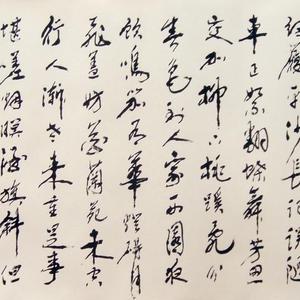 細履平沙長記誤隨
車正絮翻蝶舞芳思
交加柳下桃蹊亂分
春色到人家西園夜
飲鳴笳有華燈礙月
飛蓋妨花蘭苑未空
行人漸老來重是事
堪嗟煙暝酒旗斜但